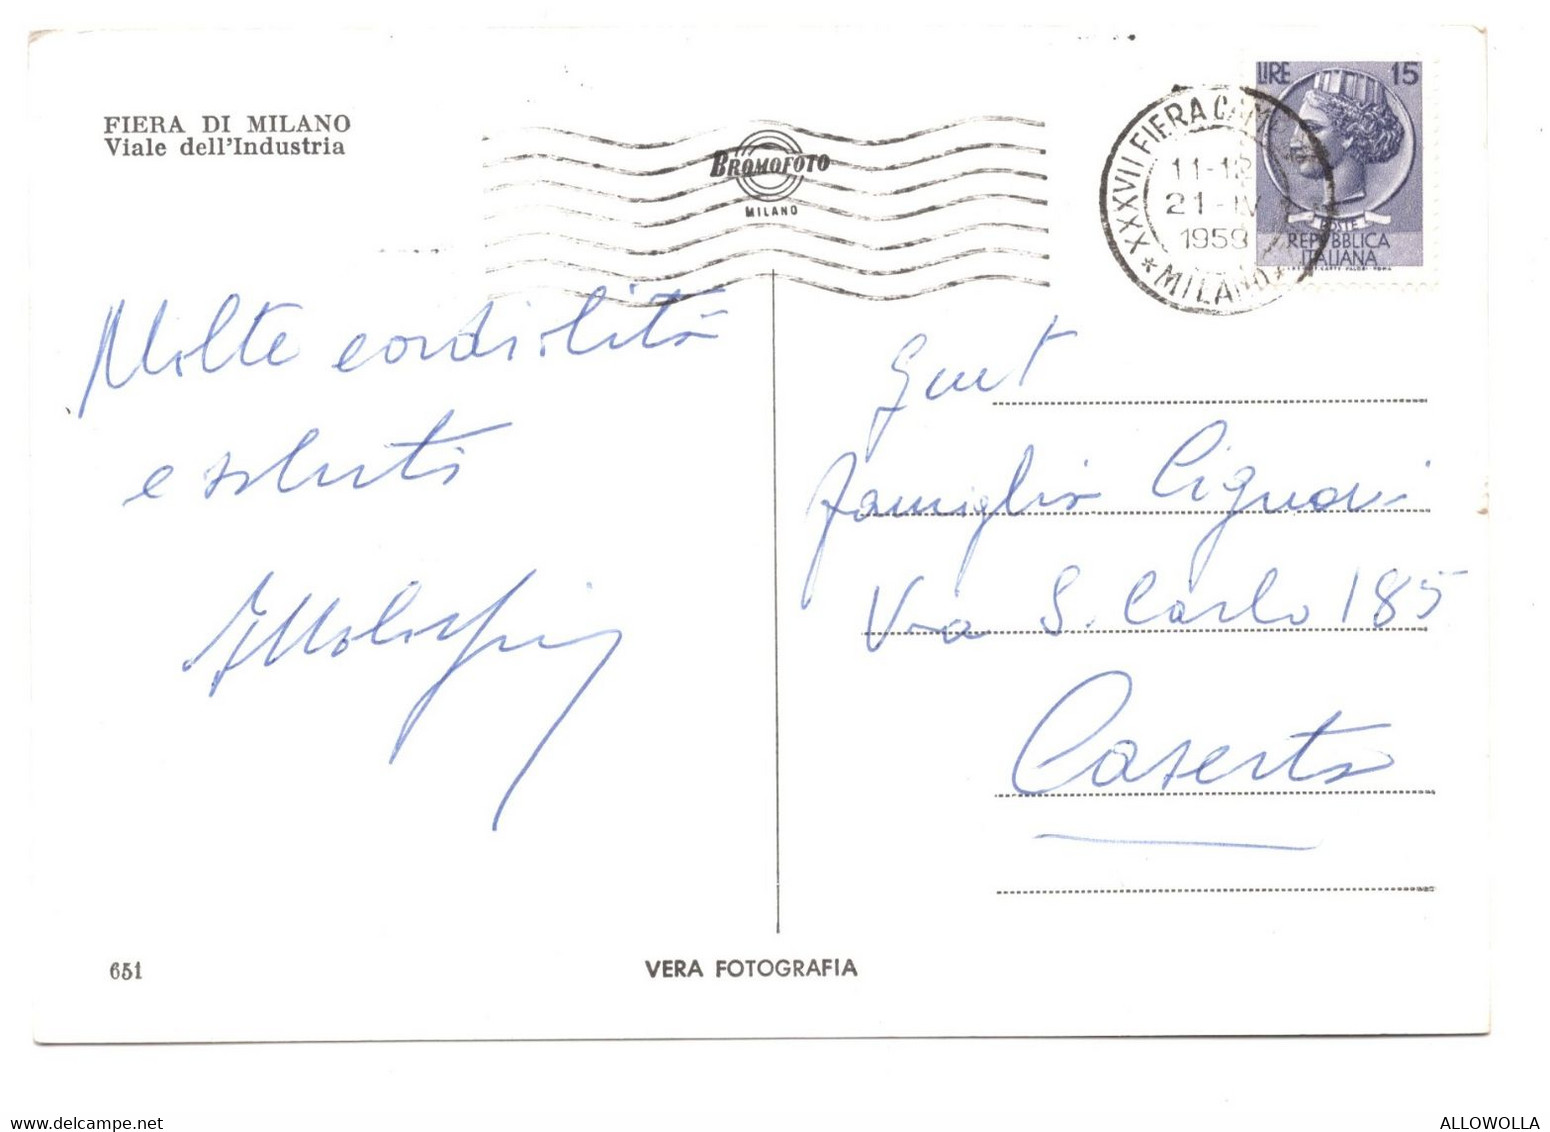 FIERA DI MILANO
Viale dell'Industria
BROMOFOTO
MILANO
XXXVII FIERA CAM
11-12
21-IV
1959
* MILANO *
LIRE 15
POSTE
REPUBBLICA
ITALIANA
Molte cordialità
e saluti
Gent
famiglia
Via S. Carlo 185
Caserta
651
VERA FOTOGRAFIA
ALLOWOLLA